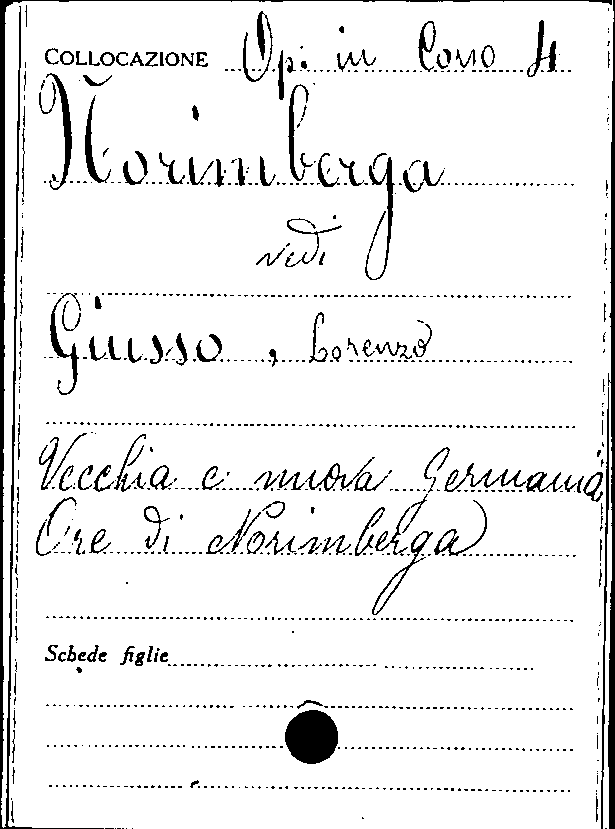 COLLOCAZIONE Op: in Corso 4
Norimberga
vedi
Giusso, Lorenzo
Vecchia e nuova Germania
Ore di Norimberga
Schede figlie